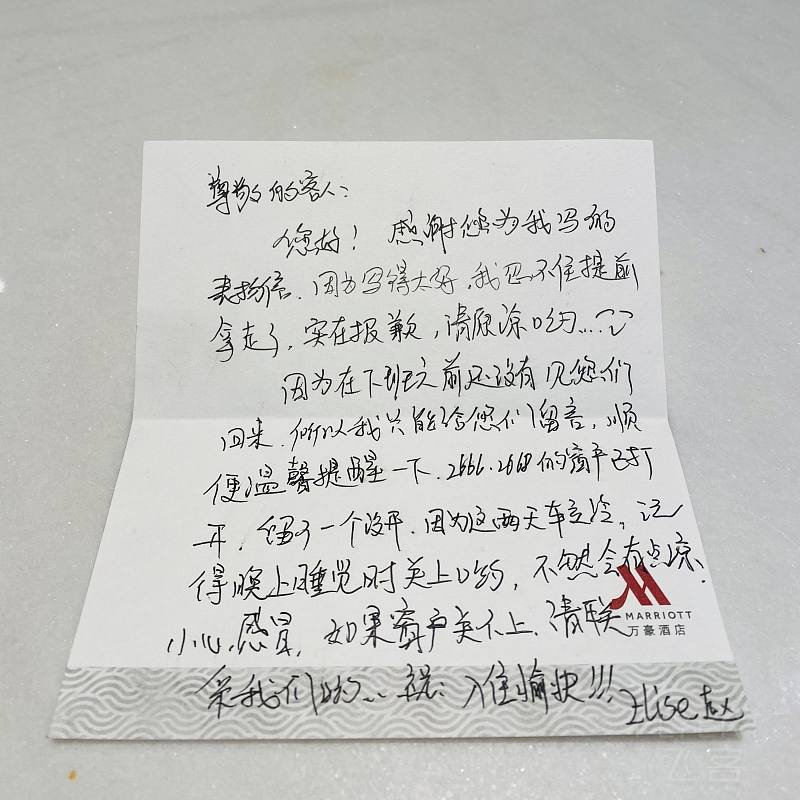 尊敬的客人：
您好！感谢您为我写的
表扬信，因为写得太好，我忍不住提前
拿走了，实在报歉，请原谅哟...
因为在下班之前还没有见您们
回来，所以我只能给您们留言，顺
便温馨提醒一下，2666.2668的窗户已打
开，留了一个没开，因为这两天车立冷。记
得晚上睡觉时关上哟，不然会有点凉，
小心感冒，如果窗户关不上，请联
系我们哟... 祝：入住愉快!!!
Elise赵
MARRIOTT
万豪酒店